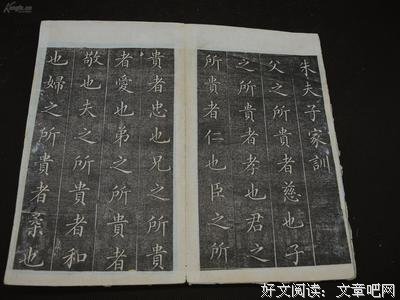 朱夫子家訓
父之所貴者慈也子
之所貴者孝也君之
所貴者仁也臣之所
貴者忠也兄之所貴
者愛也弟之所貴者
敬也夫之所貴者和
也婦之所貴者柔也
好文阅读：文章吧网